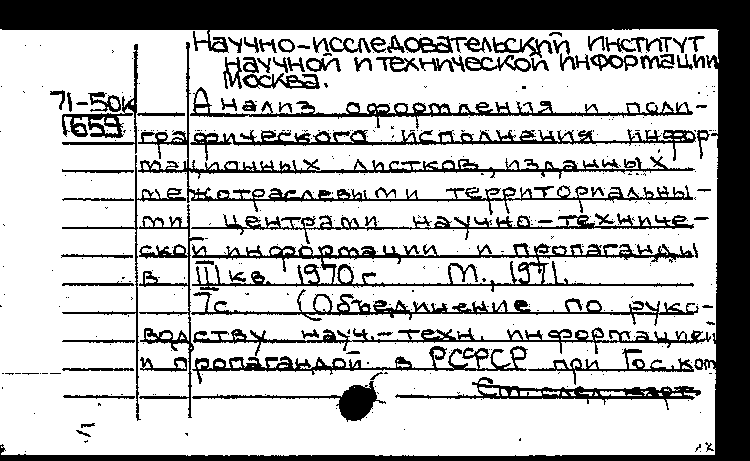 Научно-исследовательский институт
научной и технической информации
Москва.
71-50к
1659
Анализ оформления и поли-
графического исполнения инфор-
мационных листков, изданных
межотраслевыми территориальны-
ми центрами научно-техниче-
ской информации и пропаганды
в II кв. 1970 г. М., 1971.
7с. (Объединение по руко-
водству науч.-техн. информацией
и пропагандой в РСФСР при Гос. ком
См. след. карт